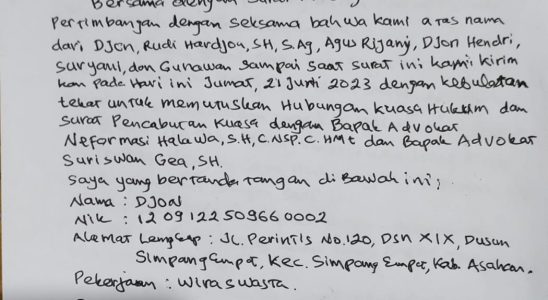 Bersama dengan Surat
Pertimbangan dengan seksama bahwa kami atas nama
dari DJon, Rudi Hardjon, SH, S.Ag, Agus Rijanj, DJon Hendri,
Suryani, dan Gunawan sampai saat surat ini kami Kirim
kan pada Hari ini Jumat, 21 Juni 2023 dengan kebulatan
tekat untuk memutuskan Hubungan kuasa Hukum dan
Surat Pencabutan Kuasa dengan Bapak Advokat
Neformasi Halawa, S.H, C.NSP. C.HMt dan Bapak Advokat
Suriswan Gea, SH.
Saya yang bertanda tangan di Bawah ini;
Nama : DJON
Nik : 12 09 12250966 0002
Alamat Lengkap : JL. Perintis No.120, Dsn XIX, Dusun
Simpang Empat, Kec. Simpang Empat, Kab. Asahan.
Pekerjaan : Wiraswasta.